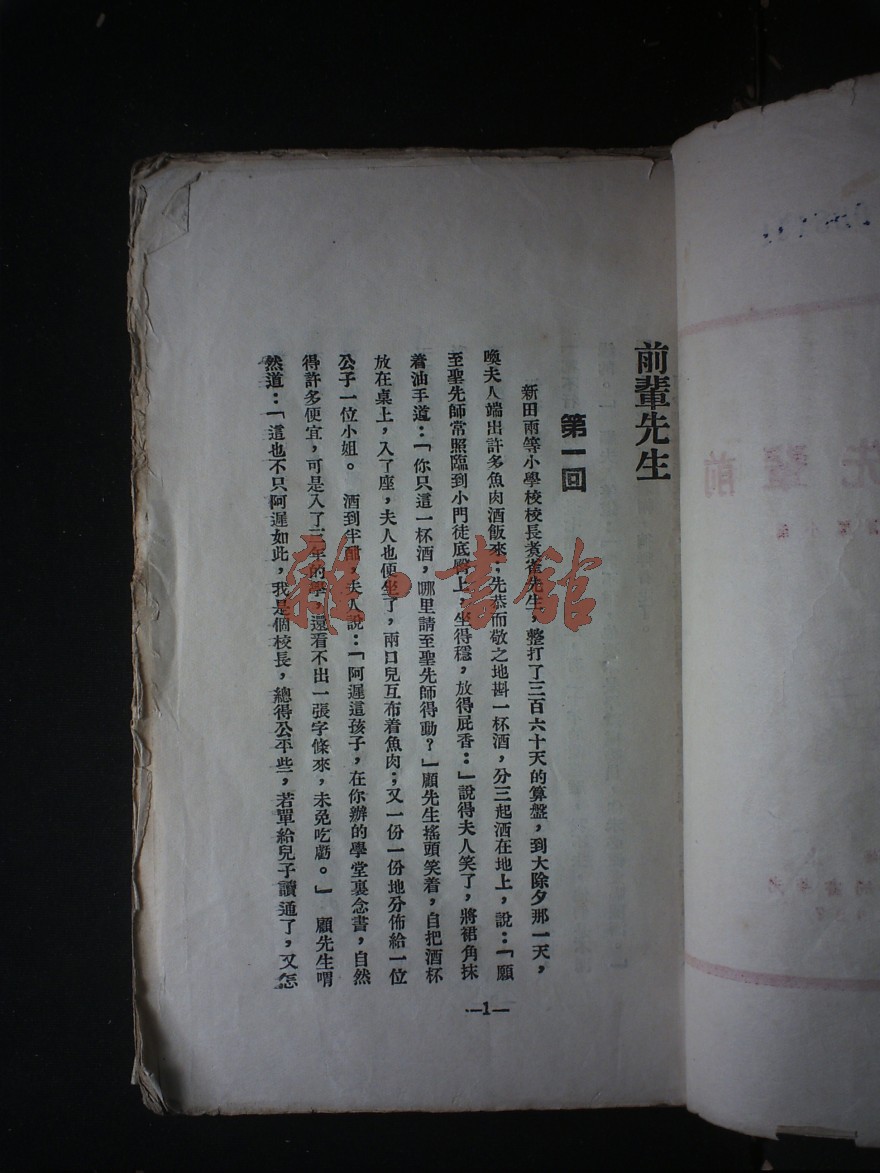 前輩先生
第一回
新田兩等小學校校長煮雀先生，整打了三百六十天的算盤，到大除夕那一天，
喚夫人端出許多魚肉酒飯來；先恭而敬之地斟一杯酒，分三起洒在地上，說：「願
至聖先師常照臨到小門徒底　上，坐得穩，放得屁香：」說得夫人笑了，將裙角抹
着油手道：「你只這一杯酒，哪里請至聖先師得動？」顧先生搖頭笑着，自把酒杯
放在桌上，入了座，夫人也便坐了，兩口兒互布着魚肉；又一份一份地分佈給一位
公子一位小姐。　酒到半酣，夫人說：「阿遲這孩子，在你辦的學堂裏念書，自然
得許多便宜，可是入了三年的學，還看不出一張字條來，未免吃虧。」　顧先生喟
然道：「這也不只阿遲如此，我是個校長，總得公平些，若單給兒子讀通了，又怎
—1—
雜·書館
前輩先